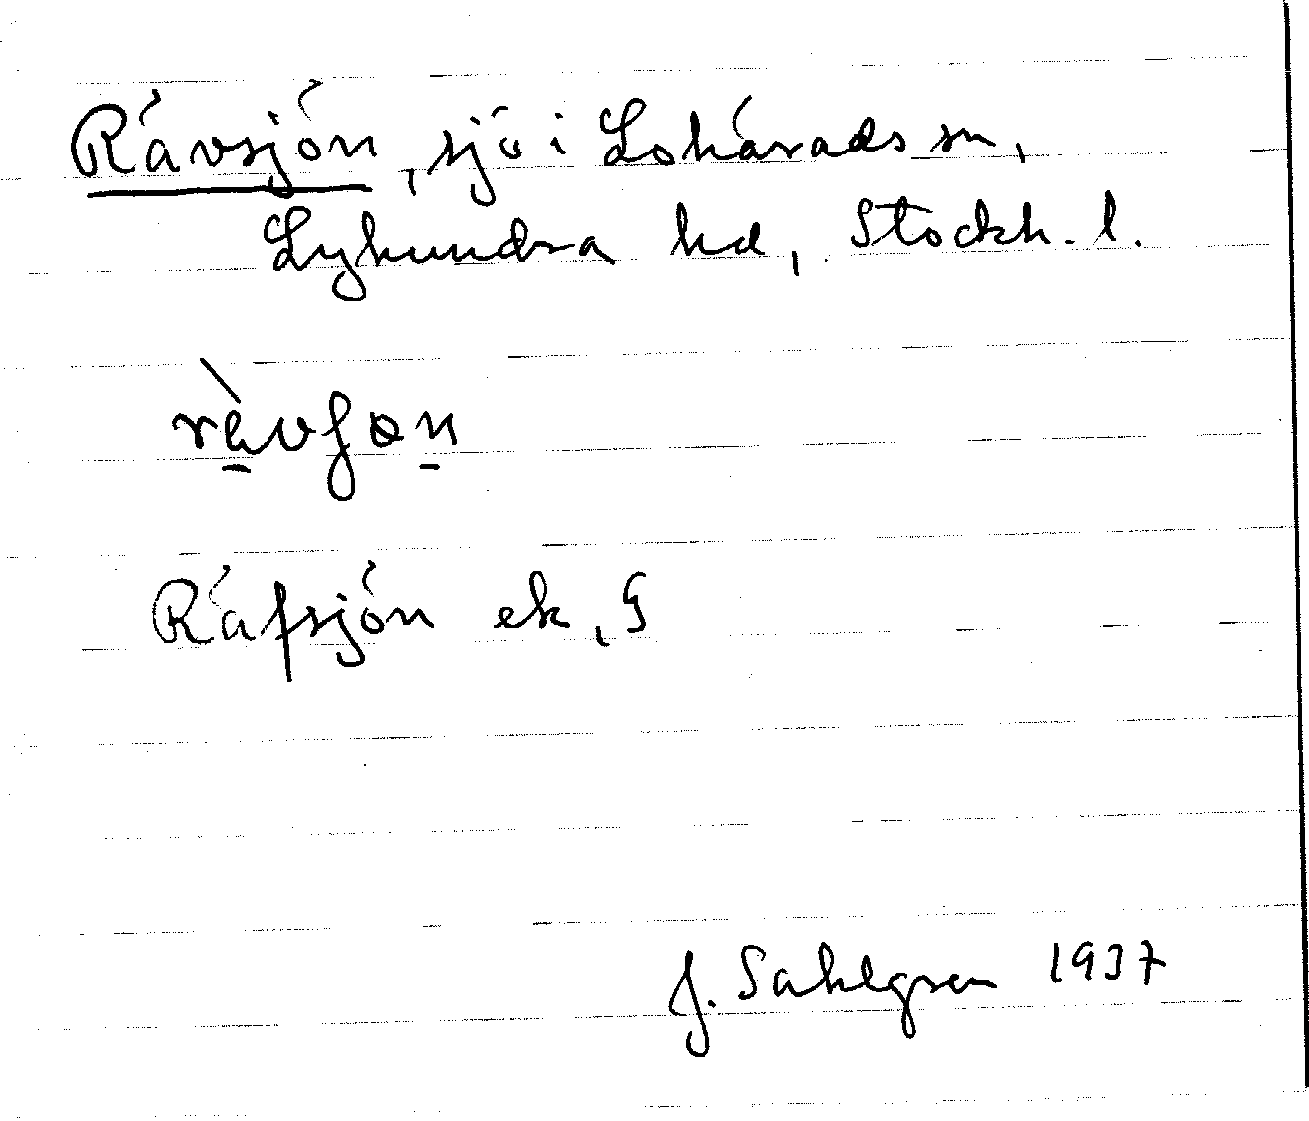 Rävsjön, sjö i Lohärads sn,
Lyhundra hd, Stockh. l.
Räfsjön ek, G
J. Sahlgren 1937